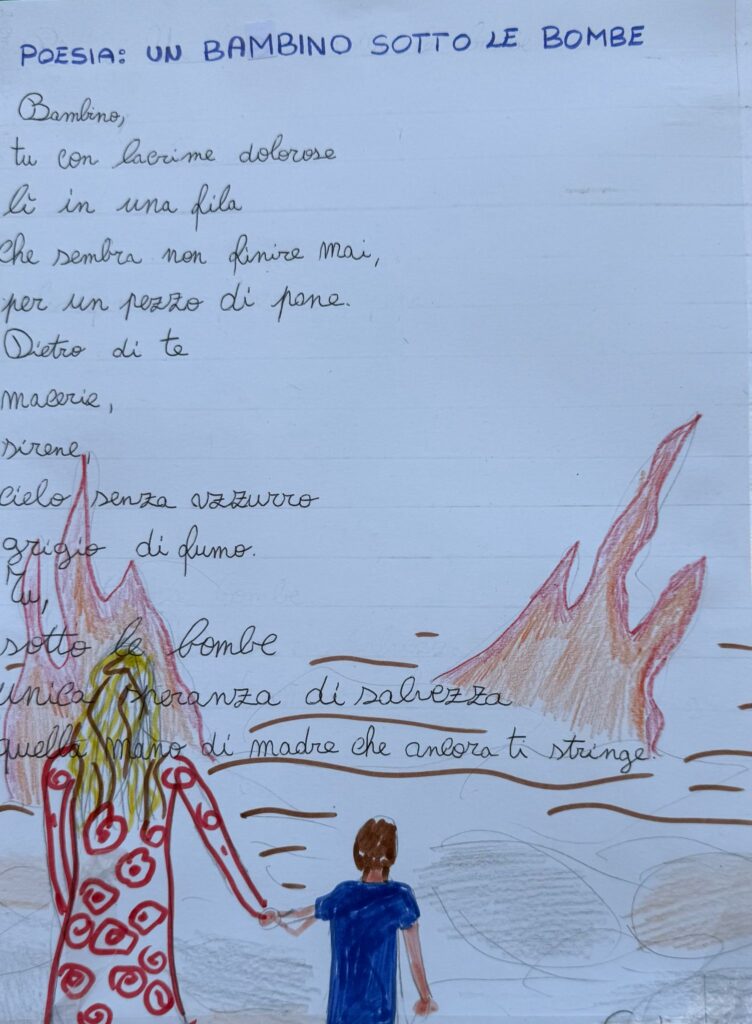 POESIA: UN BAMBINO SOTTO LE BOMBE
Bambino,
tu con lacrime dolorose
lì in una fila
che sembra non finire mai,
per un pezzo di pane.
Dietro di te
macerie,
sirene,
cielo senza azzurro
grigio di fumo.
Tu,
sotto le bombe
unica speranza di salvezza
quella mano di madre che ancora ti stringe.